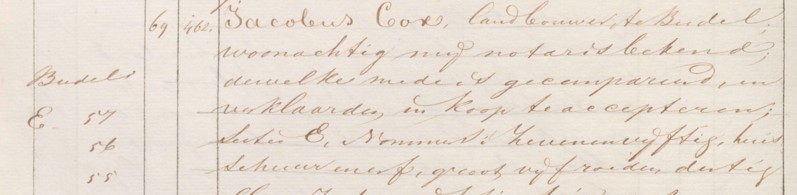 69 462. Jacobus Cox, landbouwer, te Budel
woonachtig mij notaris bekend;
Budel dewelke mede is gecompareerd, en
E 57 verklaarden in koop te accepteren;
56 Sectie E, Nommers: Zevenenvyftig, huis
55 schuur en erf, groot vyf roeden, dertig